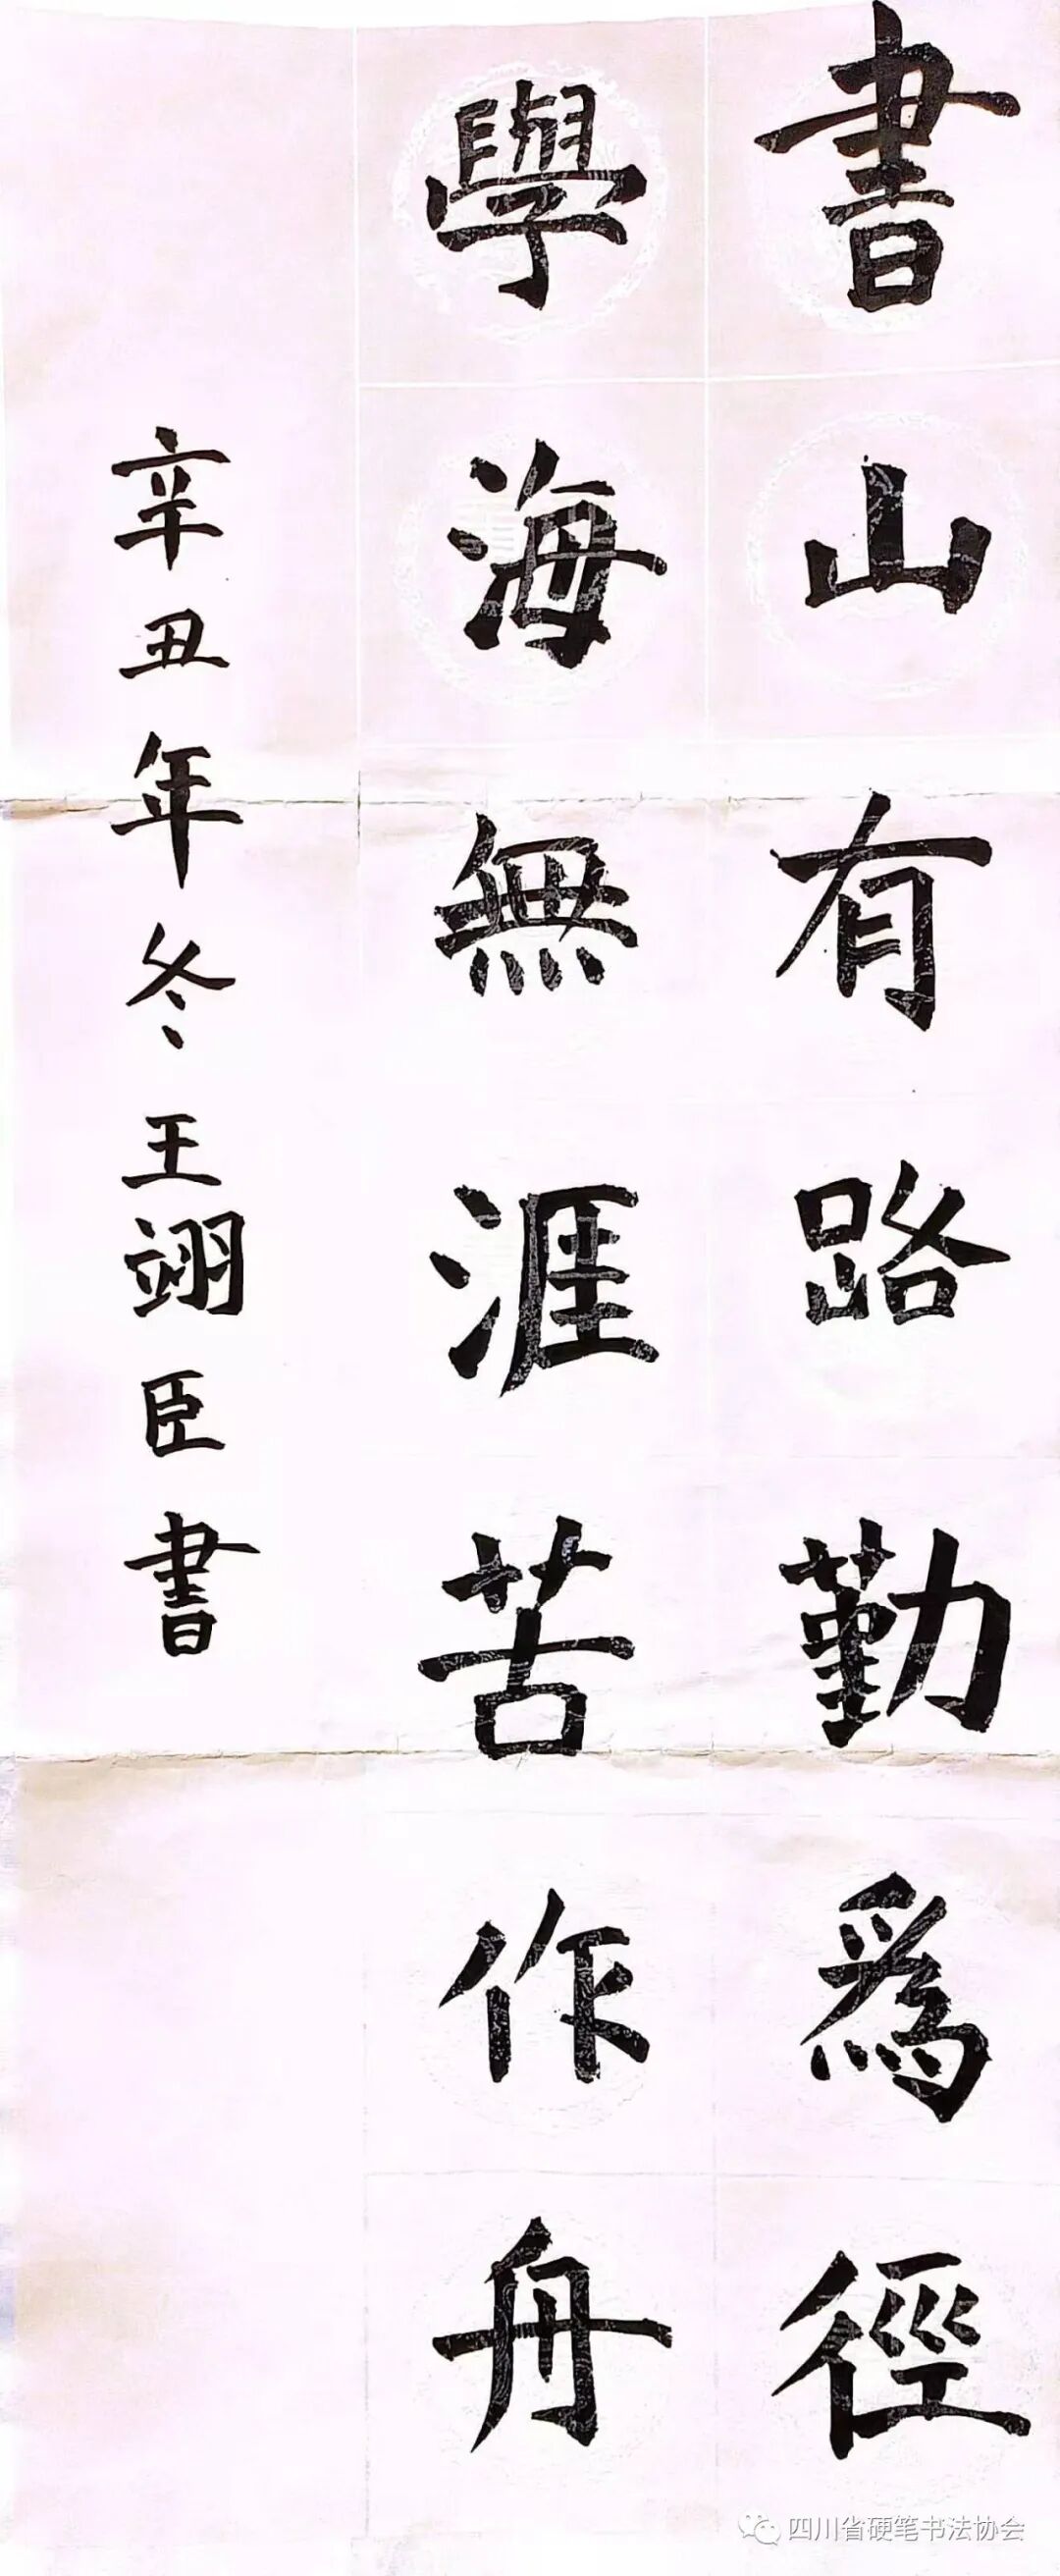 書山有路勤為徑
學海無涯苦作舟
辛丑年冬王翊臣書
四川省硬笔书法协会